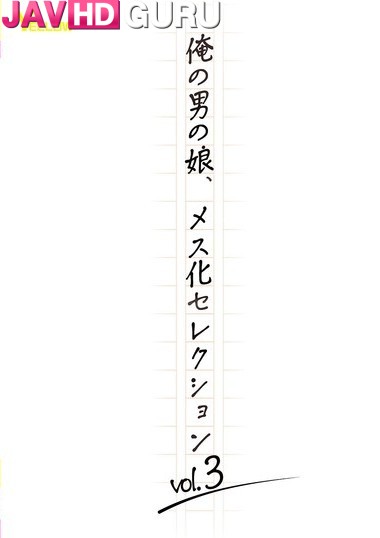 JAVHD GURU
俺の男の娘、メス化セレクション
vol.3